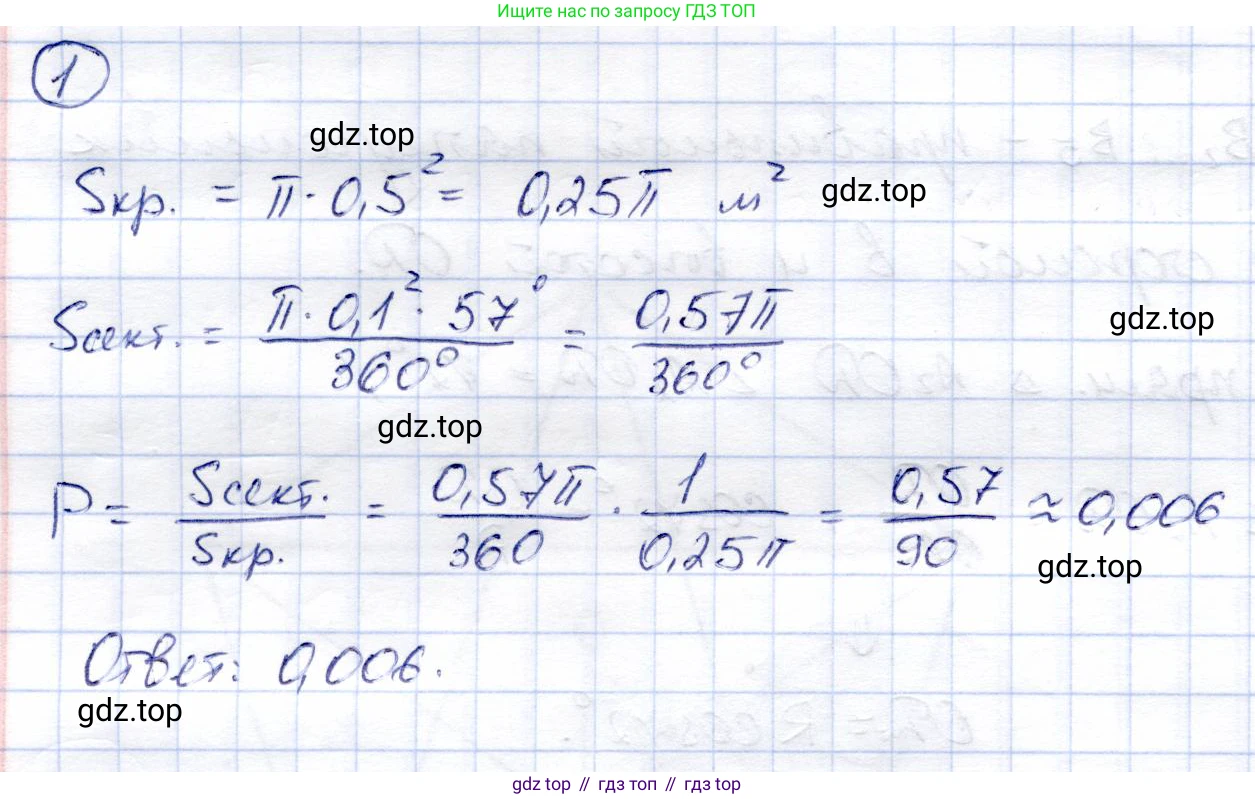 Ищите нас по запросу ГДЗ ТОП
1
gdz.top
Sкр. = π · 0,5² = 0,25π м²
gdz.top
Sсект. = π · 0,1² · 57° / 360° = 0,57π / 360°
gdz.top
gdz.top
P = Sсект. / Sкр. = 0,57π / 360 · 1 / 0,25π = 0,57 / 90 ≈ 0,006
gdz.top
Ответ: 0,006.
gdz.top
gdz top // гдз топ // gdz top